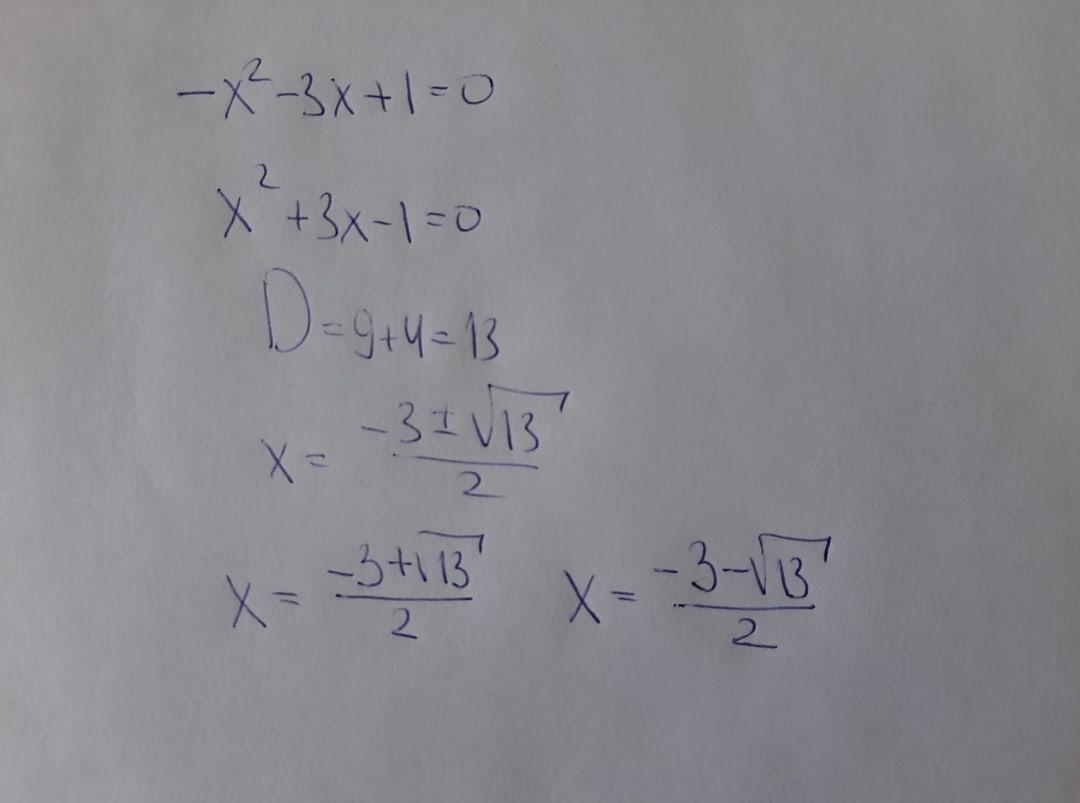 -x²-3x+1=0
x²+3x-1=0
D=9+4=13
x= (-3±√13)/2
x= (-3+√13)/2 x= (-3-√13)/2